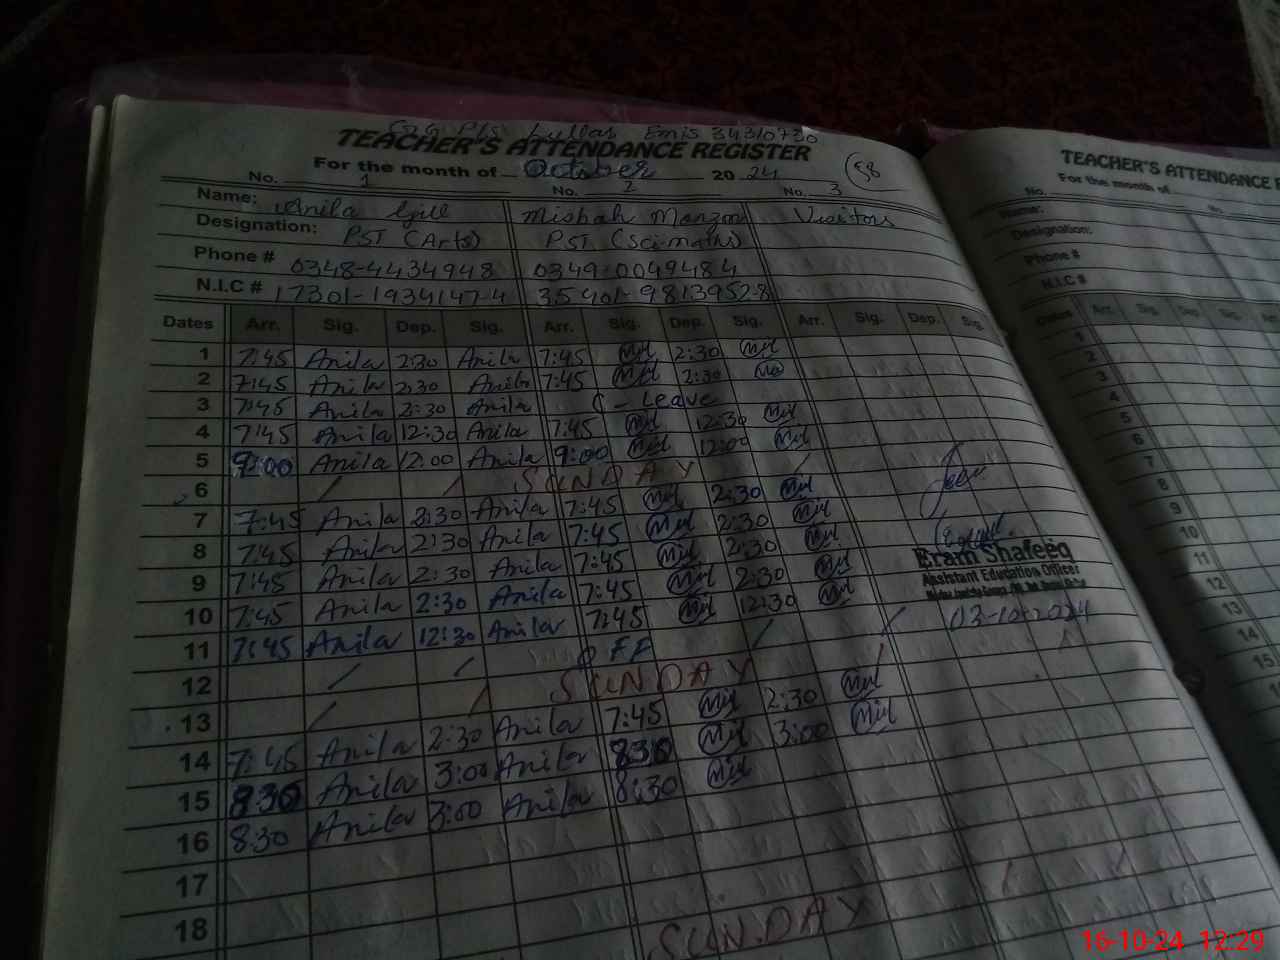 GGPS Lullas Emis 34310730
TEACHER'S ATTENDANCE REGISTER
For the month of October 2024 58
No. 1 No. 2 No. 3
Name: Anila Gul Misbah Manzoor Visitors
Designation: PST (Arts) PST (Sci-maths)
Phone # 0348-4434948 0349-0049484
N.I.C # 17301-1934147-4 35401-9813952-8
Dates Arr. Sig. Dep. Sig. Arr. Sig. Dep. Sig. Arr. Sig. Dep. Sig.
1 7:45 Anila 2:30 Anila 7:45 2:30
2 7:45 Anila 2:30 Anila 7:45 2:30
3 7:45 Anila 2:30 Anila C - Leave
4 7:45 Anila 12:30 Anila 7:45 12:30
5 9:00 Anila 12:00 Anila 9:00 12:00
6 SUNDAY
7 7:45 Anila 2:30 Anila 7:45 2:30
8 7:45 Anila 2:30 Anila 7:45 2:30
9 7:45 Anila 2:30 Anila 7:45 2:30
10 7:45 Anila 2:30 Anila 7:45 2:30
11 7:45 Anila 12:30 Anila 7:45 12:30
12 OFF
13 SUNDAY
14 7:45 Anila 2:30 Anila 7:45 2:30
15 830 Anila 3:00 Anila 830 3:00
16 8:30 Anila 3:00 Anila 8:30
17
18
SUNDAY
Eram Shafeeq
Assistant Education Officer
03-10-2024
TEACHER'S ATTENDANCE
For the month of
No.
Name:
Designation:
Phone #
N.I.C #
Dates Arr. Sig. Dep. Sig. Arr.
1
2
3
4
5
6
7
8
9
10
11
12
13
14
15
16-10-24 12:29